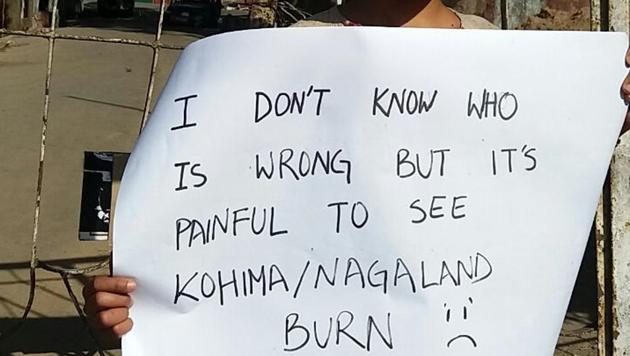 I DON'T KNOW WHO
IS WRONG BUT IT'S
PAINFUL TO SEE
KOHIMA/NAGALAND
BURN